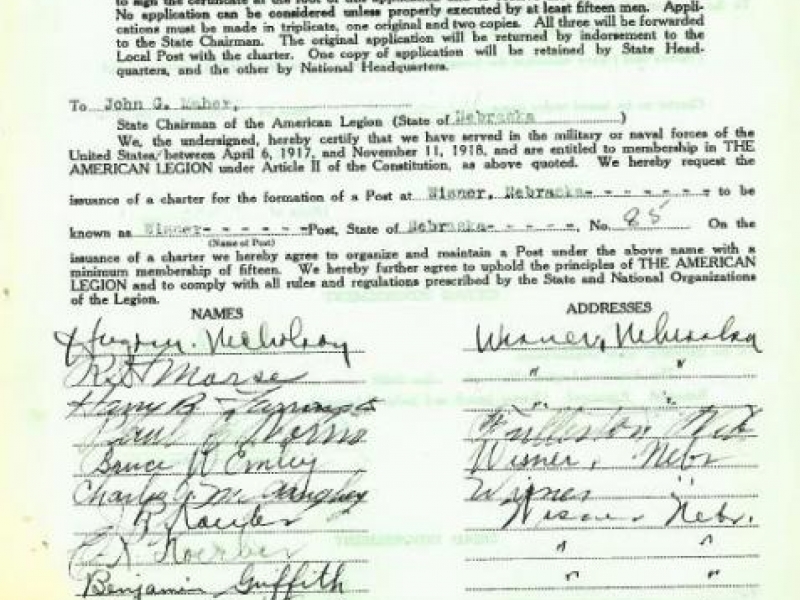 to sign the certificate at the foot of this
No application can be considered unless properly executed by at least fifteen men. Appli-
cations must be made in triplicate, one original and two copies. All three will be forwarded
to the State Chairman. The original application will be returned by indorsement to the
Local Post with the charter. One copy of application will be retained by State Head-
quarters, and the other by National Headquarters.
To John G. Maher,
State Chairman of the American Legion (State of Nebraska)
We, the undersigned, hereby certify that we have served in the military or naval forces of the
United States between April 6, 1917, and November 11, 1918, and are entitled to membership in THE
AMERICAN LEGION under Article II of the Constitution, as above quoted. We hereby request the
issuance of a charter for the formation of a Post at Wisner, Nebraska- - - - - - - to be
known as Wisner- - - - - -Post, State of Nebraska- - - - -, No. 85 On the
(Name of Post)
issuance of a charter we hereby agree to organize and maintain a Post under the above name with a
minimum membership of fifteen. We hereby further agree to uphold the principles of THE AMERICAN
LEGION and to comply with all rules and regulations prescribed by the State and National Organizations
of the Legion.
NAMES ADDRESSES
Nicholson Wisner, Nebraska
Morse " "
Harry B. " "
Paul Morris Neb
Bruce W Emley Wisner, Nebr
Charles G. McGaughey Wisner "
R Wisner Nebr.
Koerber " "
Benjamin Griffith " "